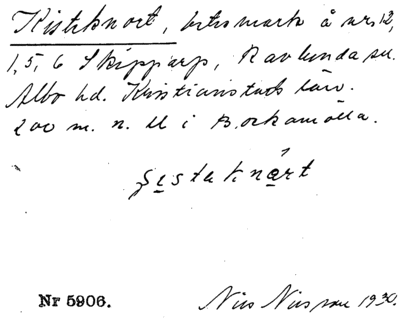 Kisteknort, betesmark å nr 12,
1, 5, 6 Skipparp, Ravlunda sn.
Albo hd. Kristianstads län.
200 m. n. M i Bockamölla.
Nr 5906. Nils Nilsson 1930.